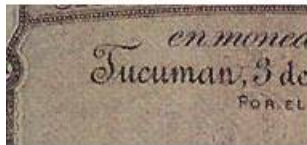 en moned
Tucuman, 3 de
POR EL